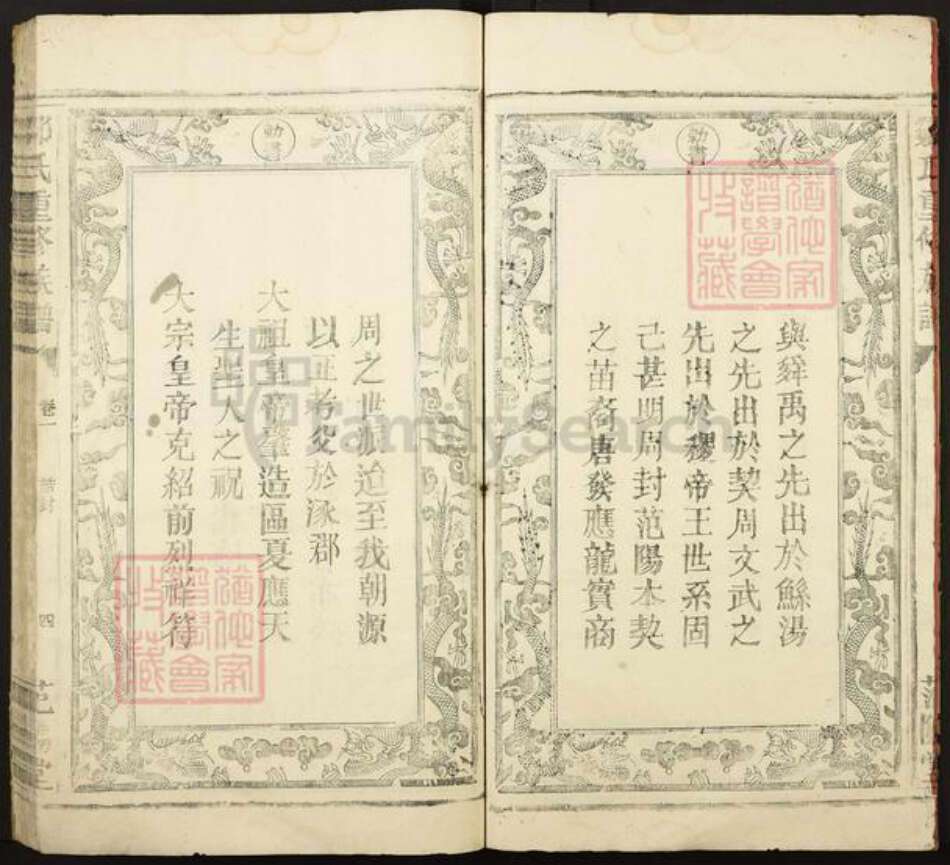 勅書
與舜禹之先出於鯀湯
之先出於契周文武之
先出於稷帝王世系固
已甚明周封范陽本契
之苗裔唐發應龍實商
勅書
周之世派迨至我朝源
以正考父於涿郡
大祖皇帝肇造區夏應天
生聖人之祝
大宗皇帝克紹前烈祥符
氏重修族譜
卷一
四
FamilySearch